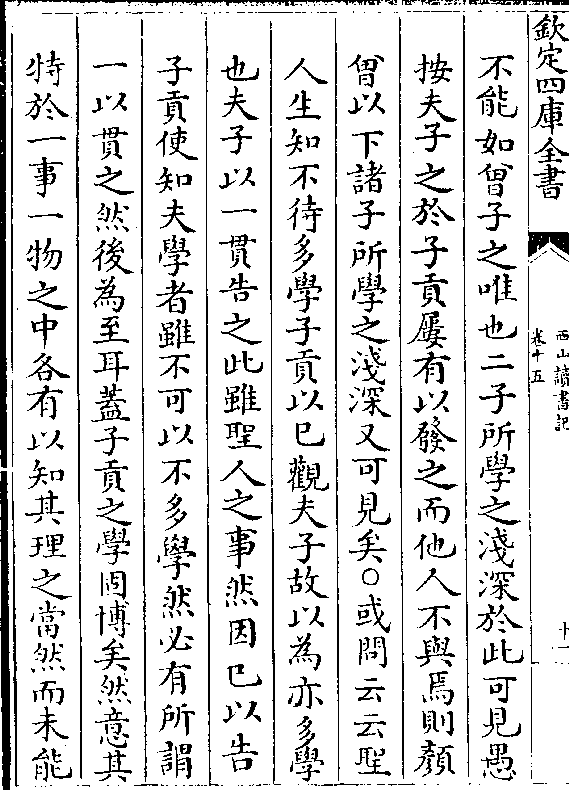 欽定四庫全書
西山讀書記
卷十五
十一
不能如曾子之唯也二子所學之淺深於此可見愚
按夫子之於子貢屢有以發之而他人不與焉則顏
曾以下諸子所學之淺深又可見矣○或問云云聖
人生知不待多學子貢以已觀夫子故以為亦多學
也夫子以一貫告之此雖聖人之事然因已以告
子貢使知夫學者雖不可以不多學然必有所謂
一以貫之然後為至耳蓋子貢之學固博矣然意其
特於一事一物之中各有以知其理之當然而未能